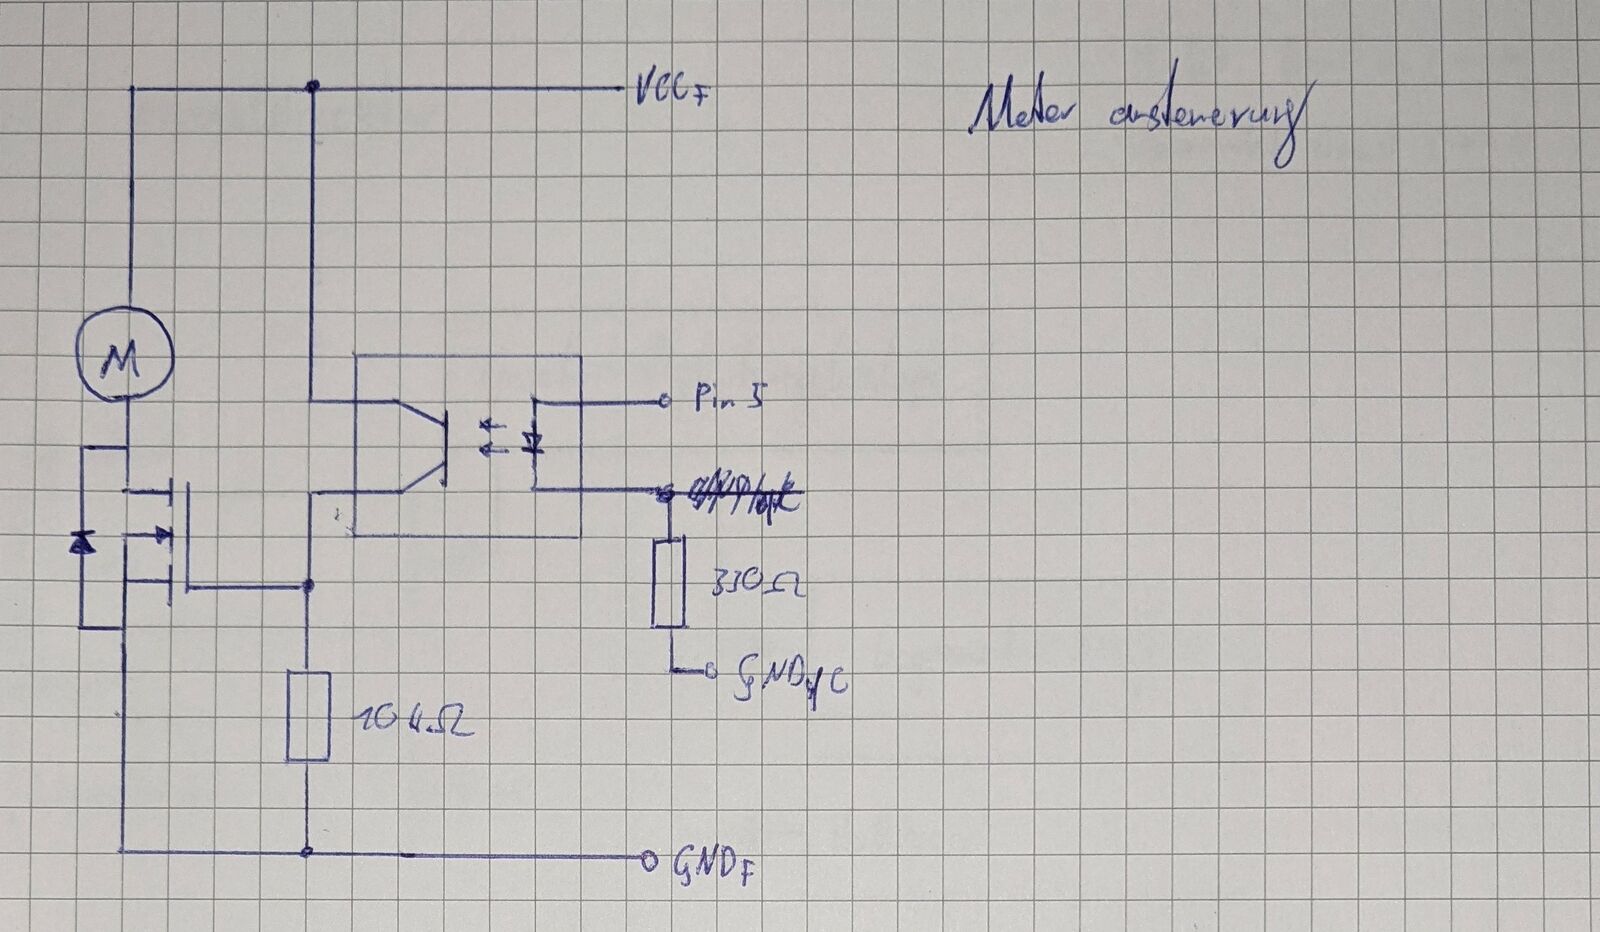 VCC_F
Motor ansteuerung
M
Pin 5
330Ω
GND_µC
10kΩ
GND_F